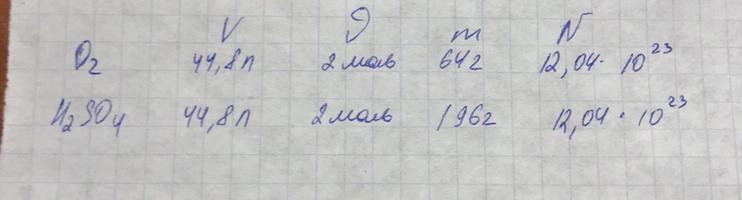 V ν m N
O₂ 44,8л 2 моль 64г 12,04 · 10²³
H₂SO₄ 44,8л 2 моль 196г 12,04 · 10²³